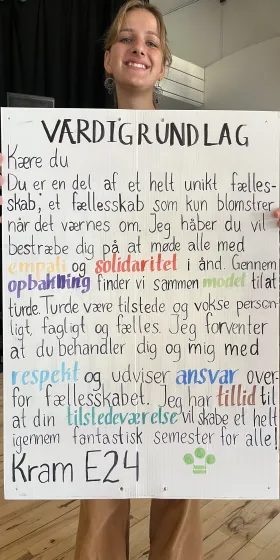 VÆRDIGRUNDLAG
Kære du
Du er en del af et helt unikt fælles-
skab; et fællesskab som kun blomstrer
når det værnes om. Jeg håber du vil
bestræbe dig på at møde alle med
empati og solidaritet i ånd. Gennem
opbakning finder vi sammen modet til at
turde. Turde være tilstede og vokse person-
ligt, fagligt og fælles. Jeg forventer
at du behandler dig og mig med
respekt og udviser ansvar over-
for fællesskabet. Jeg har tillid til
at din tilstedeværelse vil skabe et helt
igennem fantastisk semester for alle!
Kram E24